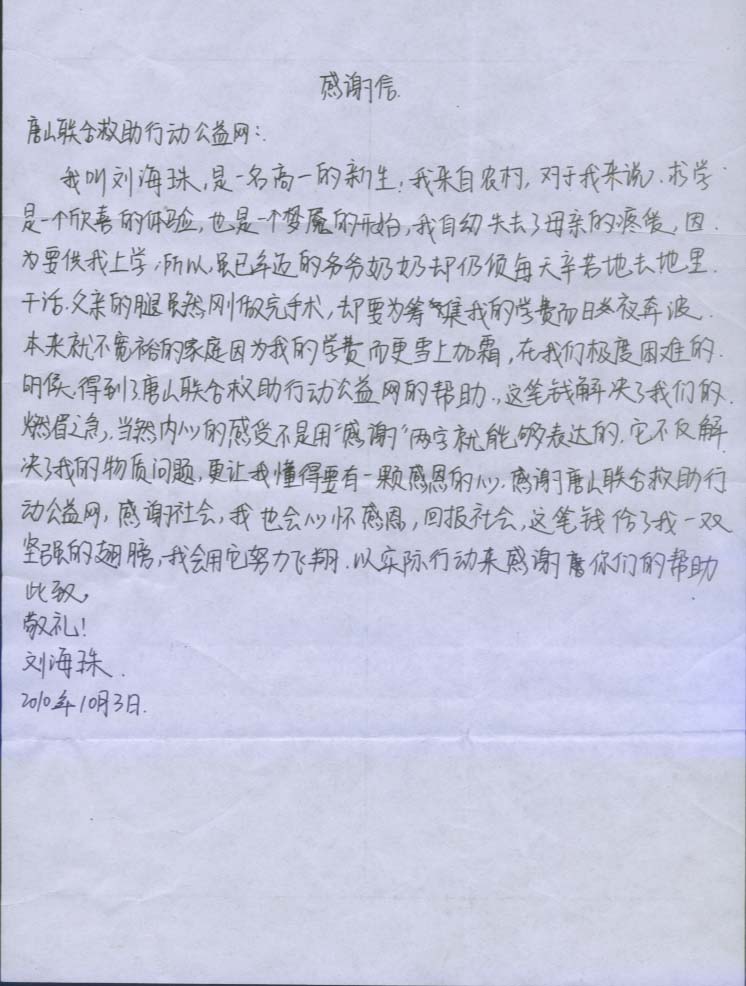 感谢信.
唐山联合救助行动公益网:.
我叫刘海珠,是一名高一的新生,我来自农村,对于我来说.求学
是一个欣喜的体验,也是一个梦魇的开始,我自幼失去了母亲的疼爱,因.
为要供我上学,所以,虽已年迈的爷爷奶奶却仍须每天辛苦地去地里.
干活.父亲的腿虽然刚做完手术,却要为筹集我的学费而日夜奔波.
本来就不宽裕的家庭因为我的学费而更雪上加霜,在我们极度困难的.
时候.得到了唐山联合救助行动公益网的帮助.,这笔钱解决了我们的.
燃眉之急,当然内心的感受不是用“感谢”两字就能够表达的.它不仅解
决了我的物质问题,更让我懂得要有一颗感恩的心.感谢唐山联合救助行
动公益网,感谢社会,我也会心怀感恩,回报社会,这笔钱给了我一双
坚强的翅膀,我会用它努力飞翔.以实际行动来感谢你们的帮助
此致,
敬礼!
刘海珠.
2010年10月3日.